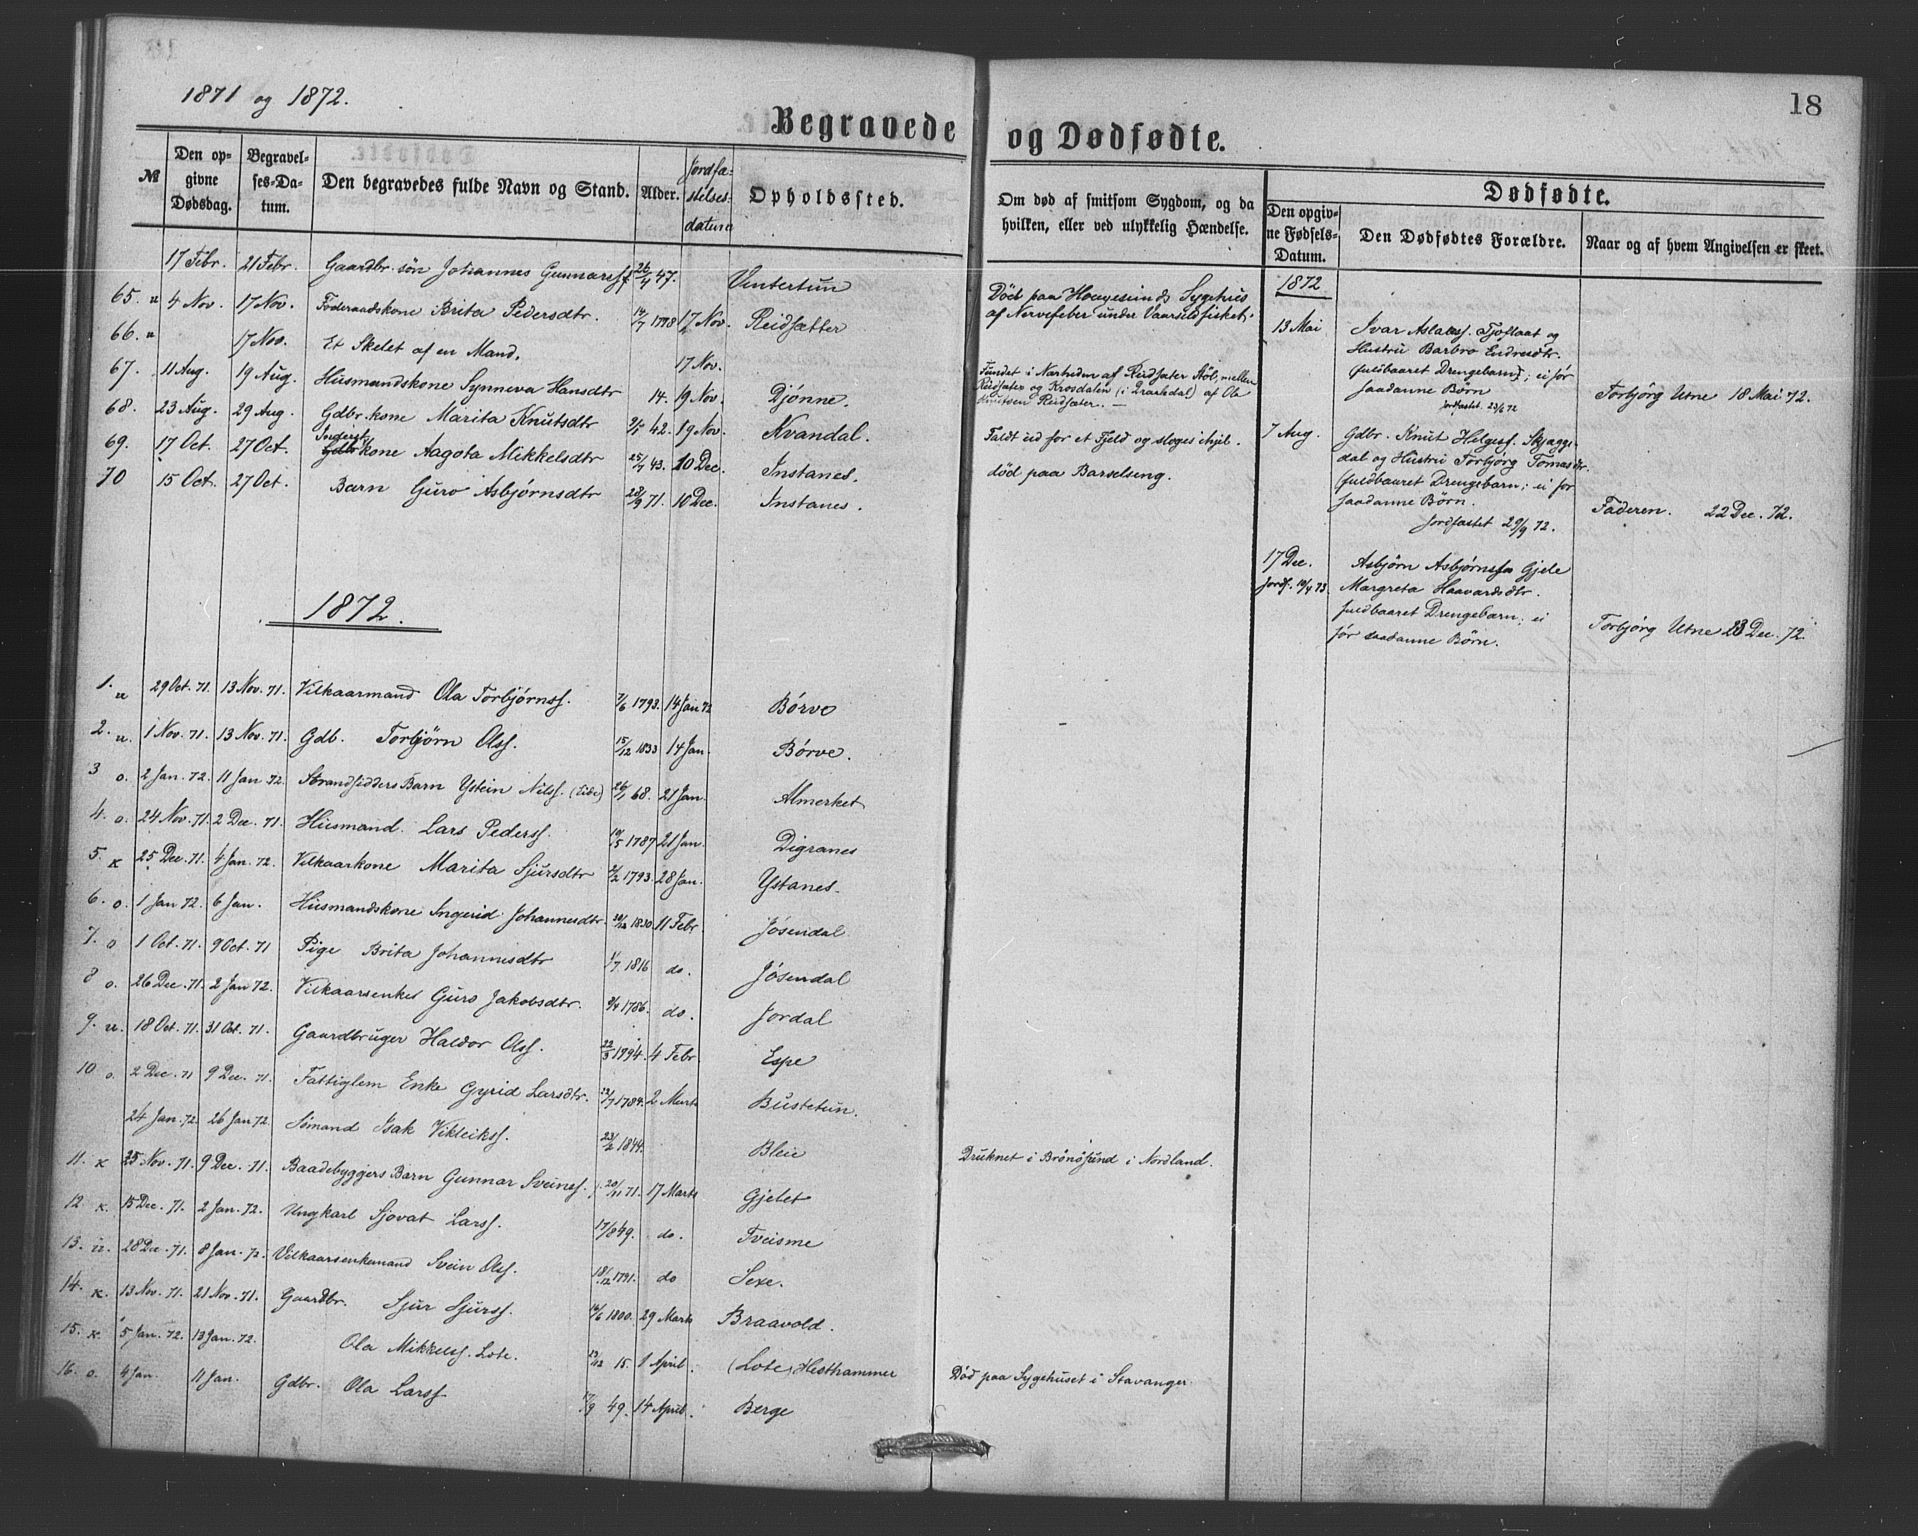 1871 og 1872.
18
Begravede og Dødfødte.
№ | Den opgivne Dødsdag. | Begravelses-Datum. | Den begravedes fulde Navn og Stand. | Alder. | Jordfæstelsesdatum | Opholdssted. | Om død af smitsom Sygdom, og da hvilken, eller ved ulykkelig Hændelse.
17 Febr. 21 Febr. Gaardbr. søn Johannes Gunnarsf 26/4 47. Vintertun Død paa Haugesunds Sygehus af Nervefeber under Vaarsildfisket.
65. u 4 Nov. 17 Nov. Føderaadskone Brita Pedersdtr. 14/7 1798 17 Nov. Reidsæter
66. u 17 Nov. Et Skelet af en Mand. 17 Nov. Fundet i Nærheden af Reidsæter Støl, mellem Reidsæter og Krosdalen af Ola Knutsen Reidsæter. —
67. 11 Aug. 19 Aug. Husmandskone Synneva Hansdtr 14. 19 Nov. Djønne.
68. 23 Aug. 29 Aug. Gdbr. kone Marita Knutsdtr 42. 19 Nov. Kvandal. Faldt ud for et Fjeld og sloges ihjel.
69. 17 Oct. 27 Oct. Inderst Kone Aagota Mikkelsdtr 25/7 43. 10 Dec. Instanes. død paa Barselseng.
70 15 Oct. 27 Oct. Barn Guro Asbjørnsdtr 28/9 71. 10 Dec. Instanes.
1872.
1. u 29 Oct. 71. 13 Nov. 71. Vilkaarmand Ola Torbjørnsf. 7/6 1793. 14 Jan 72 Børve
2. u. 1 Nov. 71. 13 Nov. 71. Gdb. Torbjörn Olsf. 15/12 1833 14 Jan. Børve.
3 o. 2 Jan. 72. 11 Jan 72. Strandsidders Barn Ystein Nilsf. 26/1 68. 21 Jan. Almerket
4. o. 24 Nov. 71. 2 Dec. 71. Husmand. Lars Pedersf. 10/5 1787. 21 Jan. Digranes
5. K 25 Dec. 71. 4 Jan. 72. Vilkaarkone Marita Sjursdtr 2/2 1793. 28 Jan. Ystanes.
6. o. 1 Jan 72. 6 Jan. Husmandskone Ingerid Johannesdtr. 20/12 1830 11 Febr. Jøsendal
7. o 1 Oct. 71. 9 Oct. 71 Pige Brita Johannesdtr 1/7 1816 do. Jøsendal
8 o. 26 Dec. 71. 2 Jan 72. Vilkaarsenke Guro Jakobsdtr. 9/4 1786. do. Jordal
9. u. 18 Oct. 71. 31 Oct. 71. Gaardbruger Haldor Olsf. 22/3 1794. 4 Febr. Espe
10 o. 2 Dec. 71 9 Dec. 71. Fattiglem Enke Gyrid Larsdtr. 22/7 1784. 2 Marts Bustetun.
24 Jan. 72. 26 Jan 72. Sømand Isak Vikleiksf. 23/2 1844. Bleie Druknet i Brönösund i Nordland.
11. K 25 Nov. 71. 9 Dec. 71. Baadebyggers Barn Gunnar Sveinsf. 20/11 71. 17 Marts Gjelet
12. K. 15 Dec. 71. 2 Jan. 72. Ungkarl Sjovat Larsf. 17/8 49. do. Tveisme
13. u. 28 Dec. 71. 8 Jan. 72. Vilkaarsenkemand Svein Olsf. 18/12 1791. do Sexe.
14. K. 13 Nov. 71. 21 Nov. 71. Gaardbr. Sjur Sjursf. 14/6 1800. 29 Marts Braavold.
15. K 5 Jan. 72. 13 Jan. 72. Ola Mikkelsf. Lote. 15. 1 April. (Lote) Hesthammer Død paa Sygehuset i Stavanger
16. o. 4 Jan. 11 Jan. Gdbr. Ola Larsf 17/9 49. 14 April. Berge
Dødfødte.
Den opgivne Fødsels-Datum. | Den Dødfødtes Forældre. | Naar og af hvem Angivelsen er skeet.
1872
13 Mai Ivar Aslaksf. Tjoflaat og
Hustru Barbro Endresdtr.
(fuldbaaret Drengebarn); ei før
saadanne Børn Torbjørg Utne 18 Mai 72.
Jordfæstet 23/6 72
7 Aug. Gdbr. Knut Helgesf. Skjæggedal og Hustru Torbjørg Tomasdtr.
(fuldbaaret Drengebarn; ei før
saadanne Børn. Faderen. 22 Dec. 72.
Jordfæstet 29/9 72.
17 Dec. Asbjörn Asbjørnsen Gjele
Jordf. 10/4 73. Margreta Haavardsdtr.
fuldbaaret Drengebarn; ei
før saadanne Børn. Torbjørg Utne 23 Dec. 72.